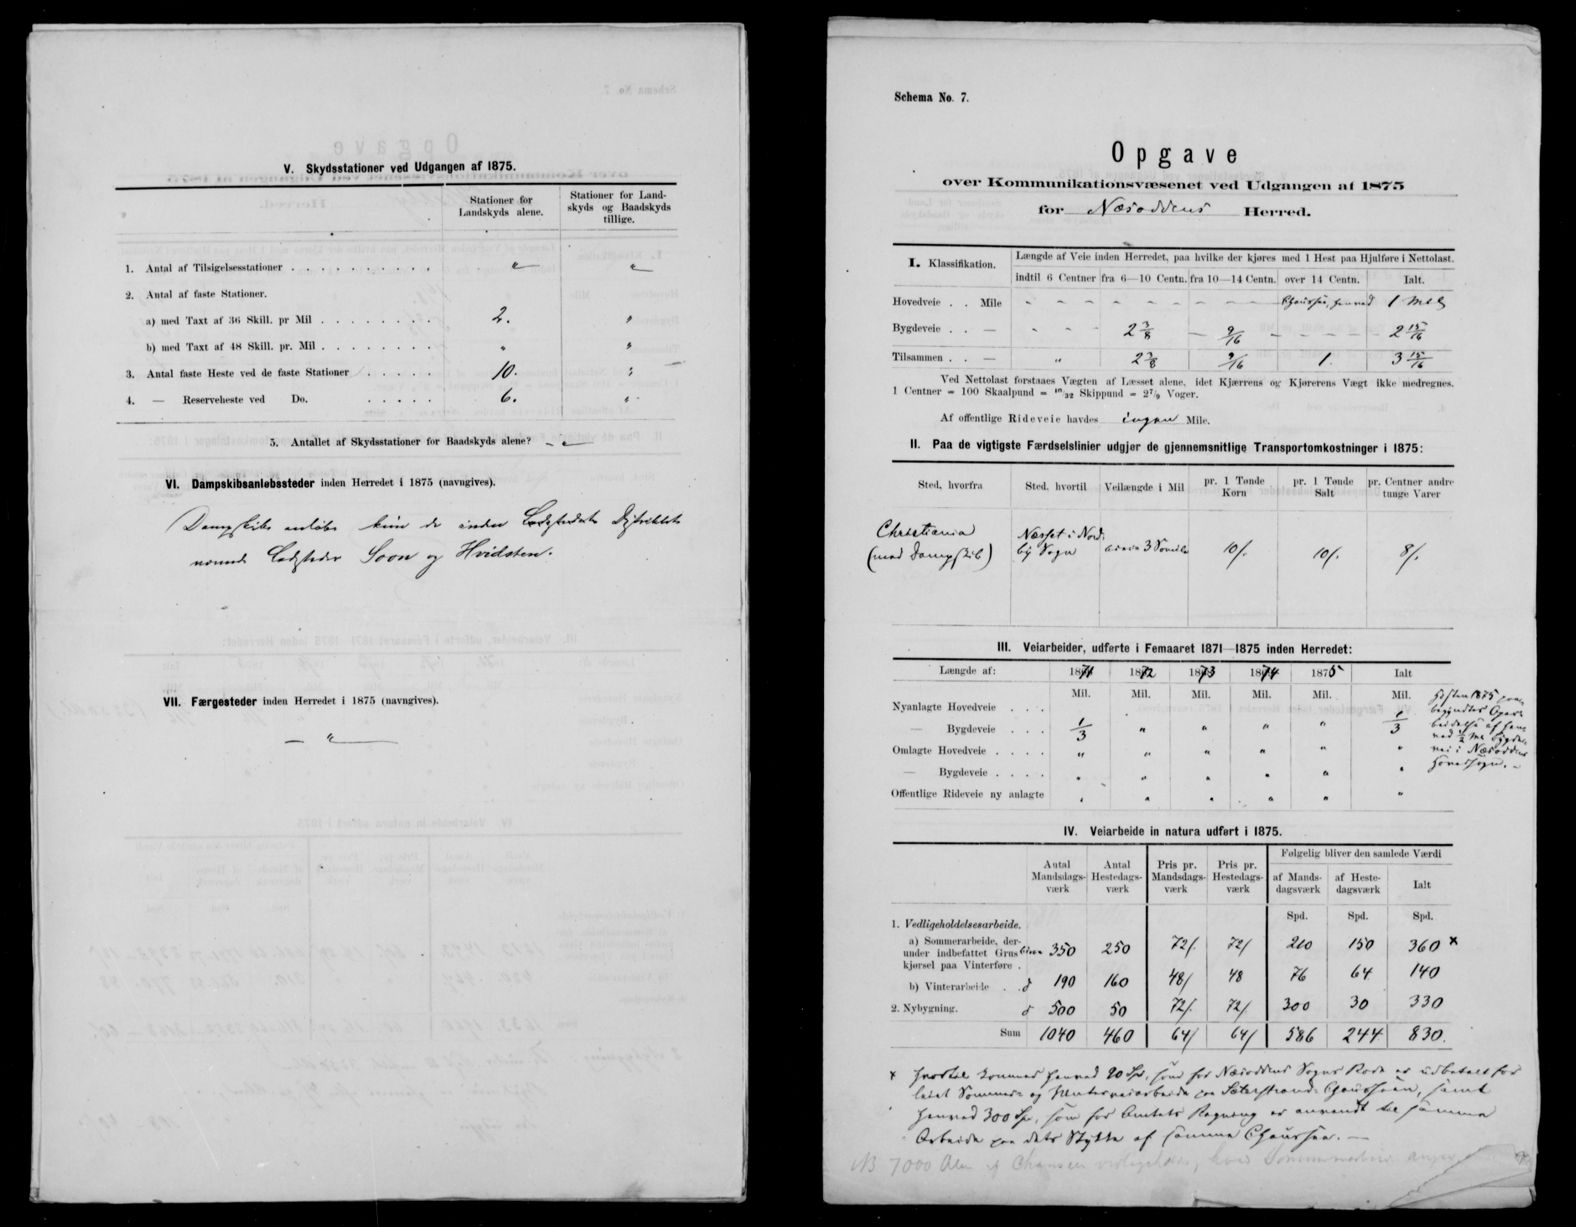 V. Skydsstationer ved Udgangen af 1875.
Stationer for Landskyds alene.
Stationer for Landskyds og Baadskyds tillige.
1. Antal af Tilsigelsesstationer . . . . . . . . . . " "
2. Antal af faste Stationer.
a) med Taxt af 36 Skill. pr Mil . . . . . . . . 2. "
b) med Taxt af 48 Skill. pr. Mil . . . . . . . . " "
3. Antal faste Heste ved de faste Stationer . . . . . 10. "
4. — Reserveheste ved Do. . . . . . 6. "
5. Antallet af Skydsstationer for Baadskyds alene? - "
VI. Dampskibsanløbssteder inden Herredet i 1875 (navngives).
Dampskibe anløbe kun de inden Ladestedets Distrikt
nævnte Ladesteder Soon og Hvidsten.
VII. Færgesteder inden Herredet i 1875 (navngives).
— " —
Schema No. 7.
Opgave
over Kommunikationsvæsenet ved Udgangen af 1875
for Næsoddens Herred.
I. Klassifikation.
Længde af Veie inden Herredet, paa hvilke der kjøres med 1 Hest paa Hjulføre i Nettolast.
indtil 6 Centner fra 6—10 Centn. fra 10—14 Centn. over 14 Centn. Ialt.
Hovedveie . . Mile - - - - - - - - - Chaussee, henved 1 Mil
Bygdeveie . . — - - - 2 3/8 — 9/16 - - - - 2 15/16
Tilsammen . . — " 2 3/8 9/16 1. 3 15/16
Ved Nettolast forstaaes Vægten af Læsset alene, idet Kjærrens og Kjørerens Vægt ikke medregnes.
1 Centner = 100 Skaalpund = 10/32 Skippund = 2 7/9 Voger.
Af offentlige Rideveie havdes ingen Mile.
II. Paa de vigtigste Færdselslinier udgjør de gjennemsnitlige Transportomkostninger i 1875:
Sted, hvorfra Sted, hvortil Veilængde i Mil pr. 1 Tønde Korn pr. 1 Tønde Salt pr. Centner andre tunge Varer
Christiania Næsset i Nord-
(med Dampskib) by Sogn circa 3 Sømile 10/. 10/. 8/.
III. Veiarbeider, udførte i Femaaret 1871—1875 inden Herredet:
Længde af: 1871 1872 1873 1874 1875 Ialt
Mil. Mil. Mil. Mil. Mil. Mil.
Nyanlagte Hovedveie . . .
— Bygdeveie . . . 1/3 " " " " 1/3
Omlagte Hovedveie . . . . " " " " " "
— Bygdeveie . . . . " " " " " "
Offentlige Rideveie ny anlagte " " " " " "
Høsten 1875 paa-
begyndtes Opar-
beidelse af hen-
ved 1/2 Mil Bygde-
vei i Næsoddens
Hovedsogn. -
IV. Veiarbeide in natura udført i 1875.
Antal Mandsdagsværk
Antal Hestedagsværk
Pris pr. Mandsdagsværk
Pris pr. Hestedagsværk
Følgelig bliver den samlede Værdi
af Mandsdagsværk
af Hestedagsværk
Ialt
Spd. Spd. Spd.
1. Vedligeholdelsesarbeide.
a) Sommerarbeide, der-
under indbefattet Grus-
kjørsel paa Vinterføre . circa 350 250 72/. 72/ 210 150 360 x
b) Vinterarbeide . . d 190 160 48/ 48 76 64 140
2. Nybygning. d 500 50 72/. 72/. 300 30 330
Sum 1040 460 64/ 64/ 586 244 830.
x hvortil kommer henved 90 Spd. som for Næsoddens Sogns Rode er udbetalt for
leiet Sommer- og Vinterveiarbeide paa Sæterstrands Chausseen, samt
henved 300 Spd. som for Amtets Regning er anvendt til samme
Arbeide paa dets Stykke af samme Chaussee. —
NB 7000 Alen af Chausseen vedligeholdes,